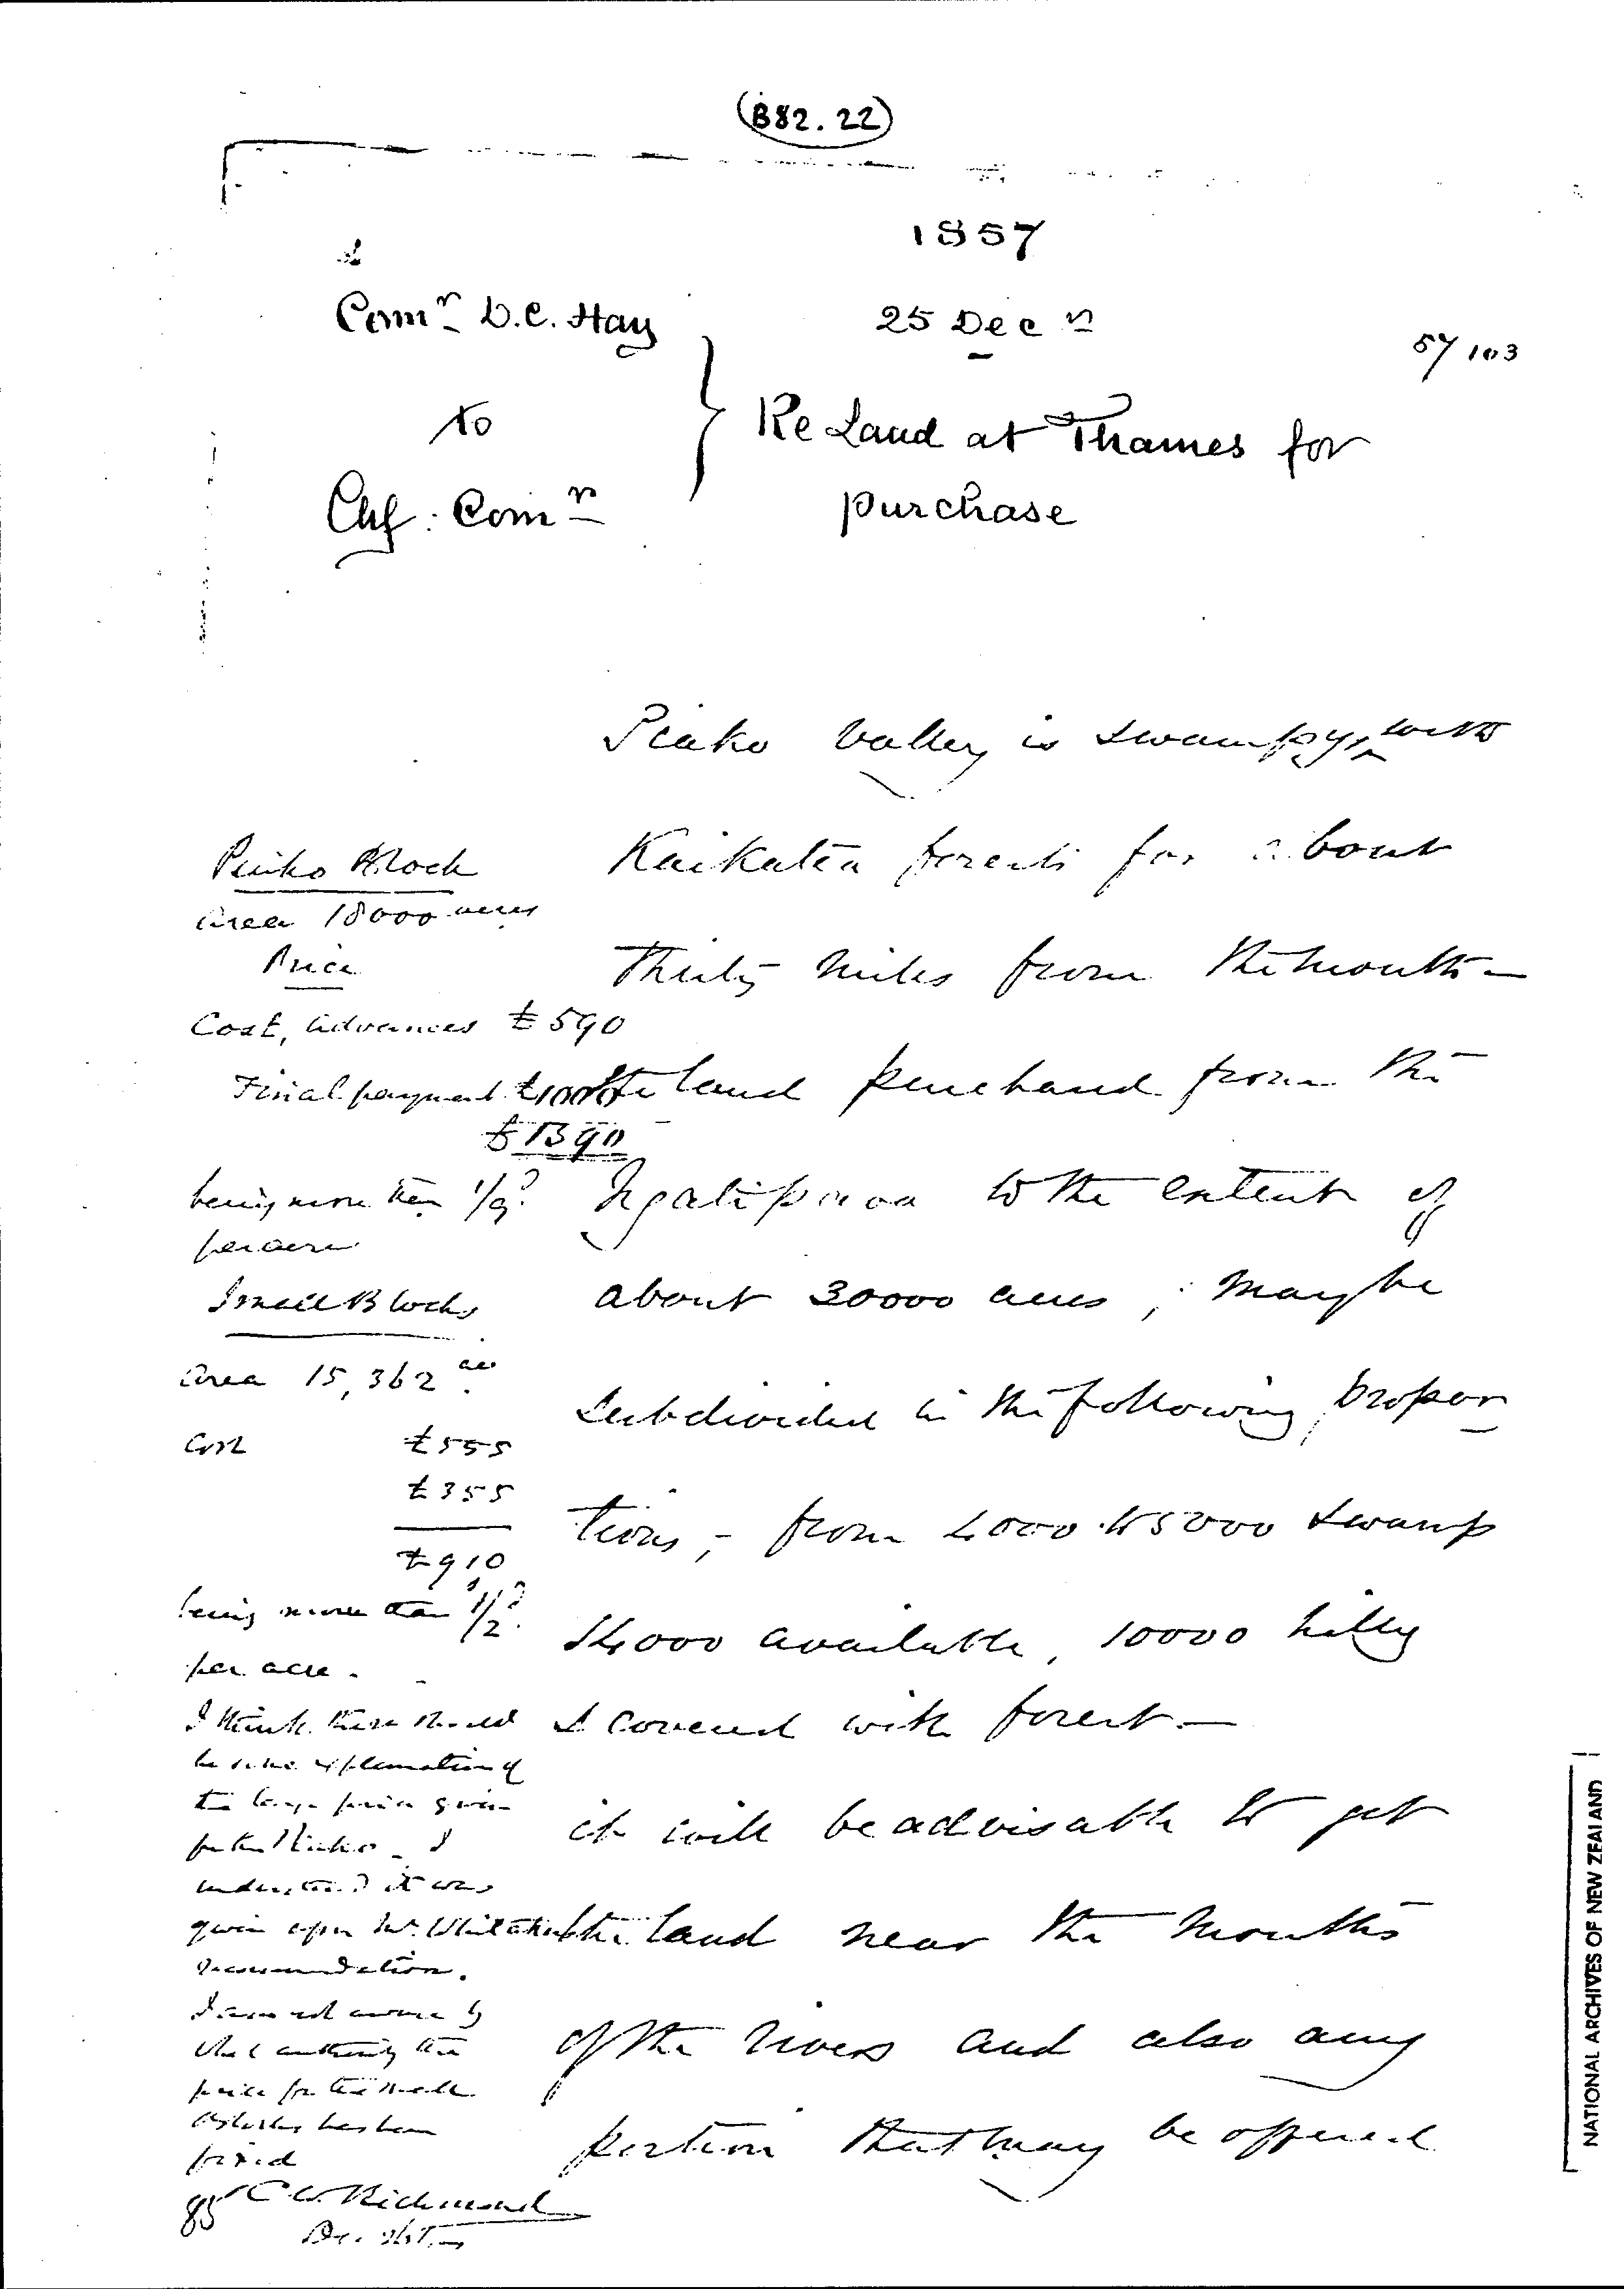 B82.22
1857
Comr D.C. Hay
25 Decr
57/103
to
Re Land at Thames for
Chf: Comr
purchase
Piako Valley is swampy, with
Kaikatea forests for about
Thirty Miles from the mouth –
the land purchased from the
Ngatipaoa to the extent of
about 30000 acres ; may be
subdivided in the following propor
tions, – from 4000 to 5000 swamp
14000 available, 10000 hilly
& covered with forest. –
it will be advisable to get
the land near the mouths
of the rivers and also any
portion that may be offered
Piako Block
area 18000 acres
Price
Cost, advances £590
Final payment £1000
being more than 1/9?
per acre
Small Blocks
Area 15,362 acs
Cost £555
£355
£910
being more than 1/2?
per acre.
I think there should
be some explanation of
the large price given
for the Piako. I
understand it was
given upon Mr. Whitaker's
recommendation.
I am not aware by
what authority the
price for the small
Blocks has been
fixed
C W Richmond
85
NATIONAL ARCHIVES OF NEW ZEALAND